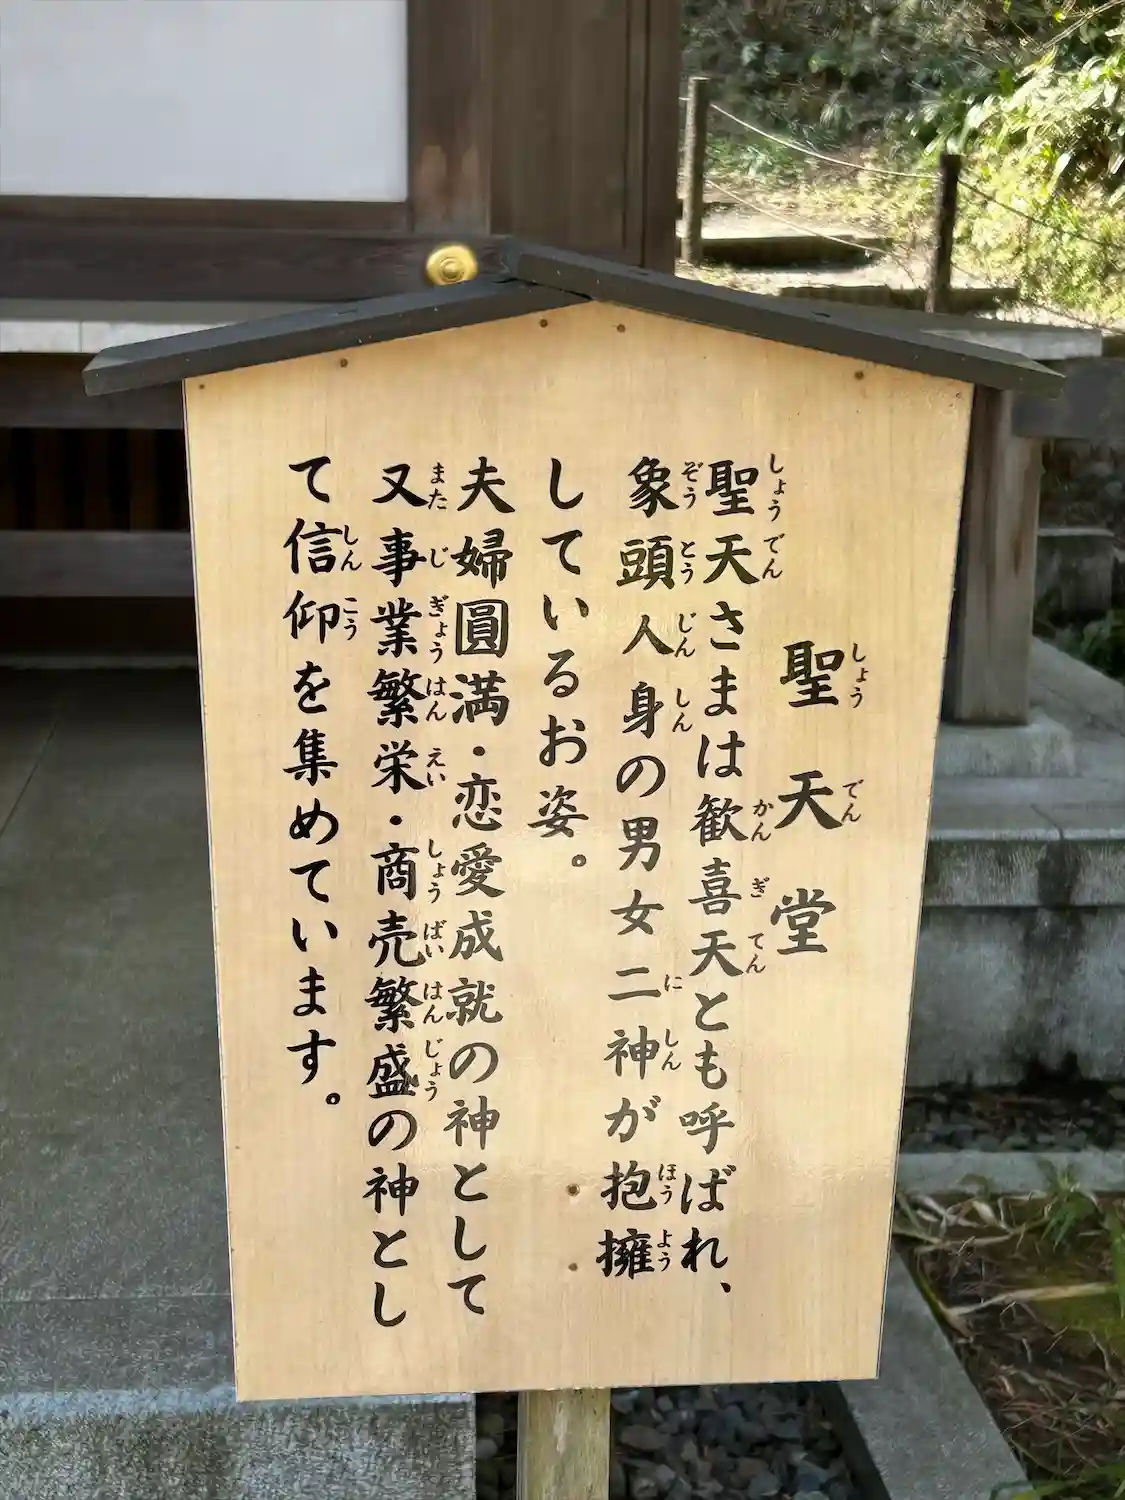 聖天堂
聖天さまは歓喜天とも呼ばれ、
象頭人身の男女二神が抱擁
しているお姿。
夫婦圓満・恋愛成就の神として
又事業繁栄・商売繁盛の神とし
て信仰を集めています。